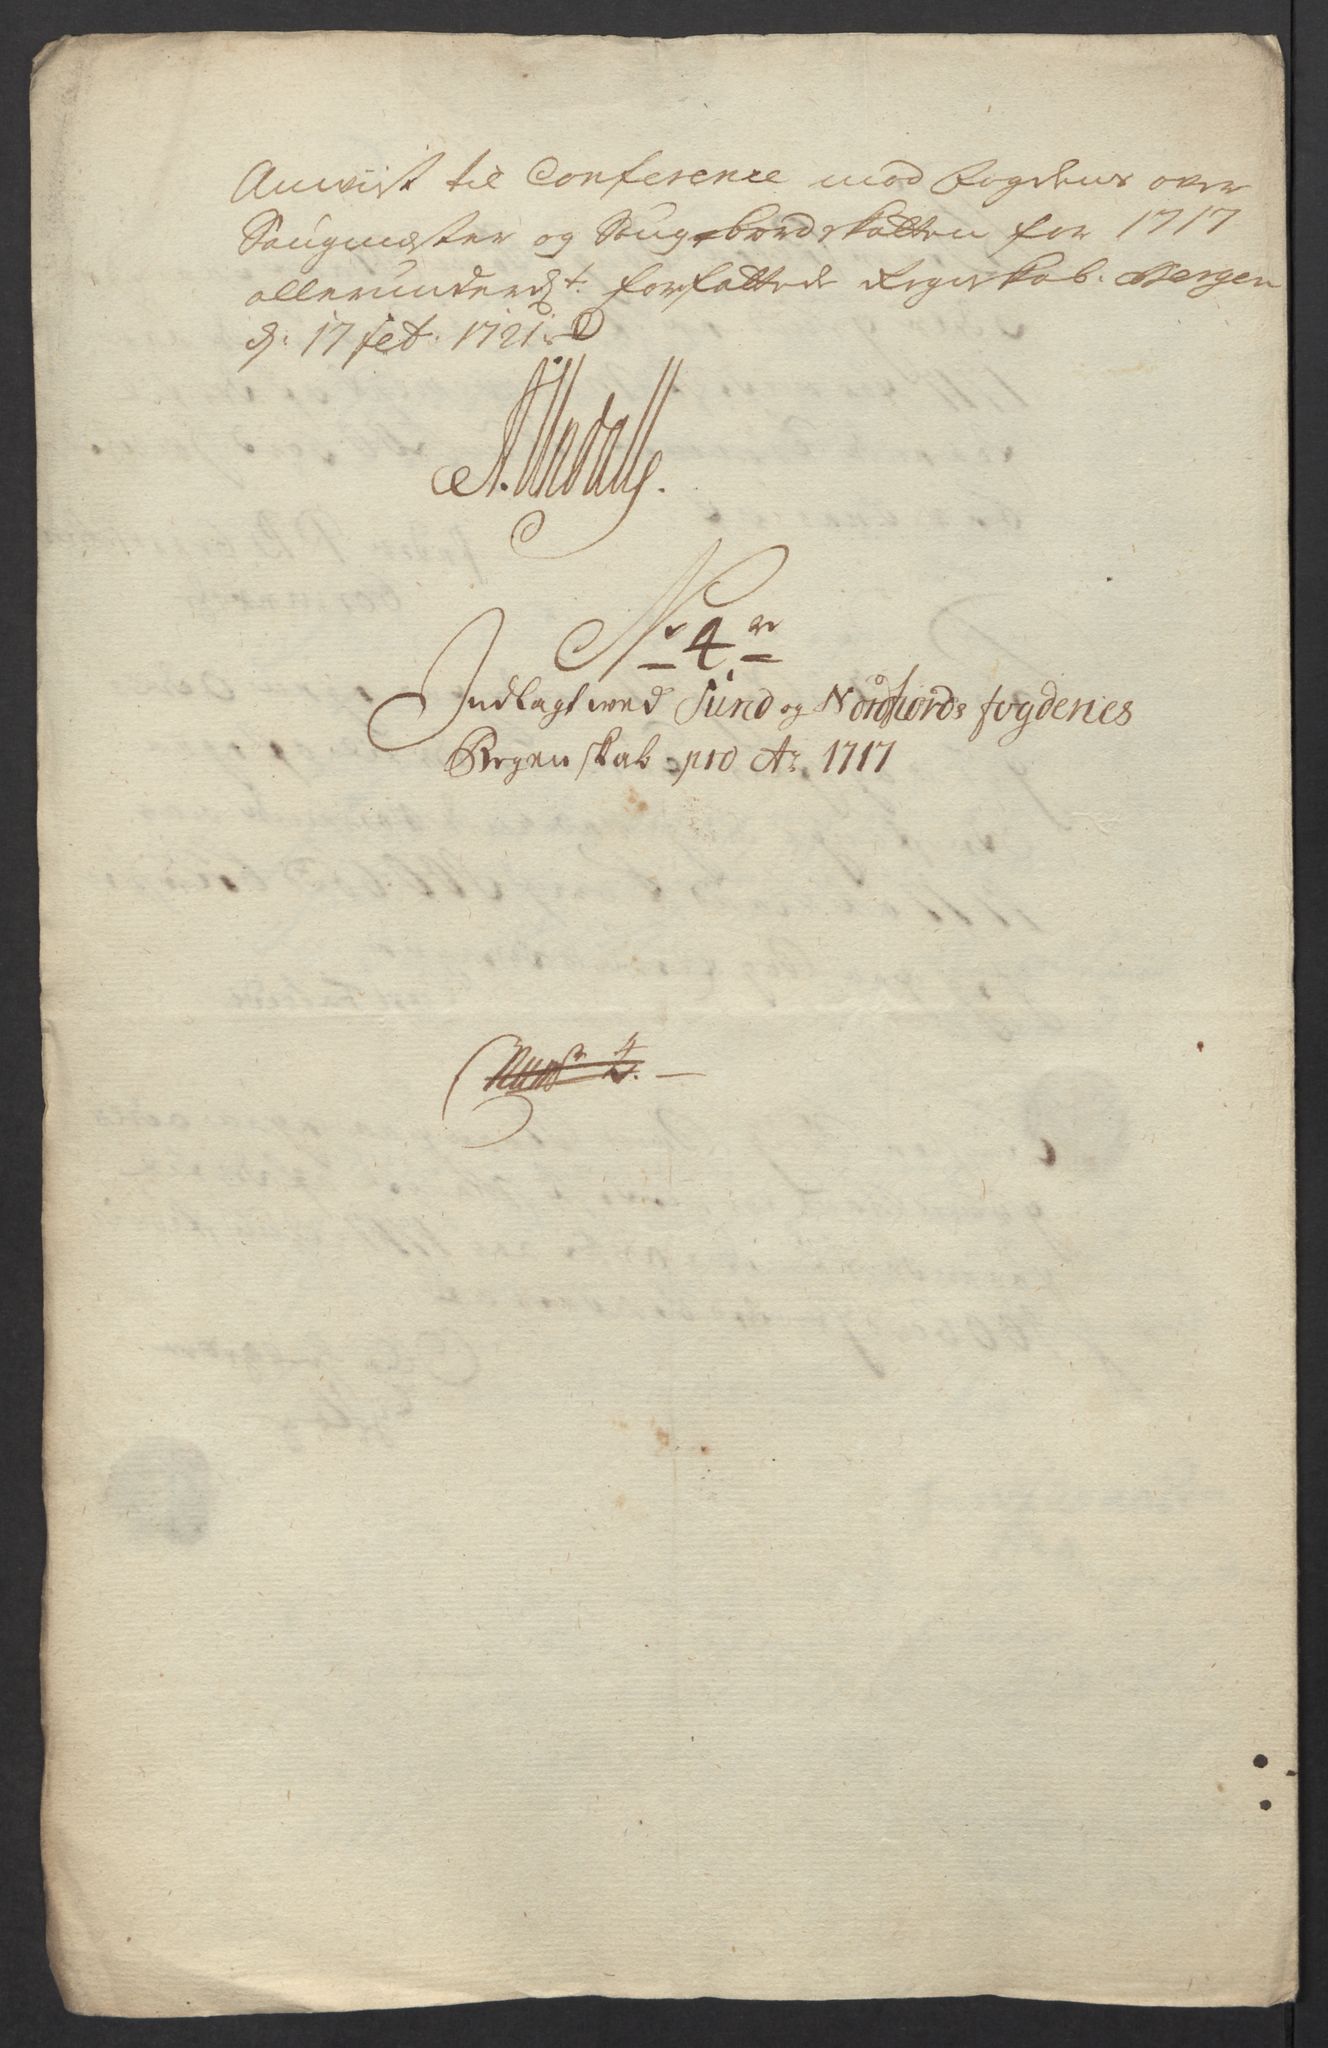 Anvist til Conference mod fogdens over
Saugmester og Saugebordskatten for 1717
allerunderdst. forfattede Regnskab. Bergen
d: 17 feb. 1721.
No 4
Indlagt wed Sund og Nordfiords fogderies
Regenskab pro Ao 1717
Num 4.